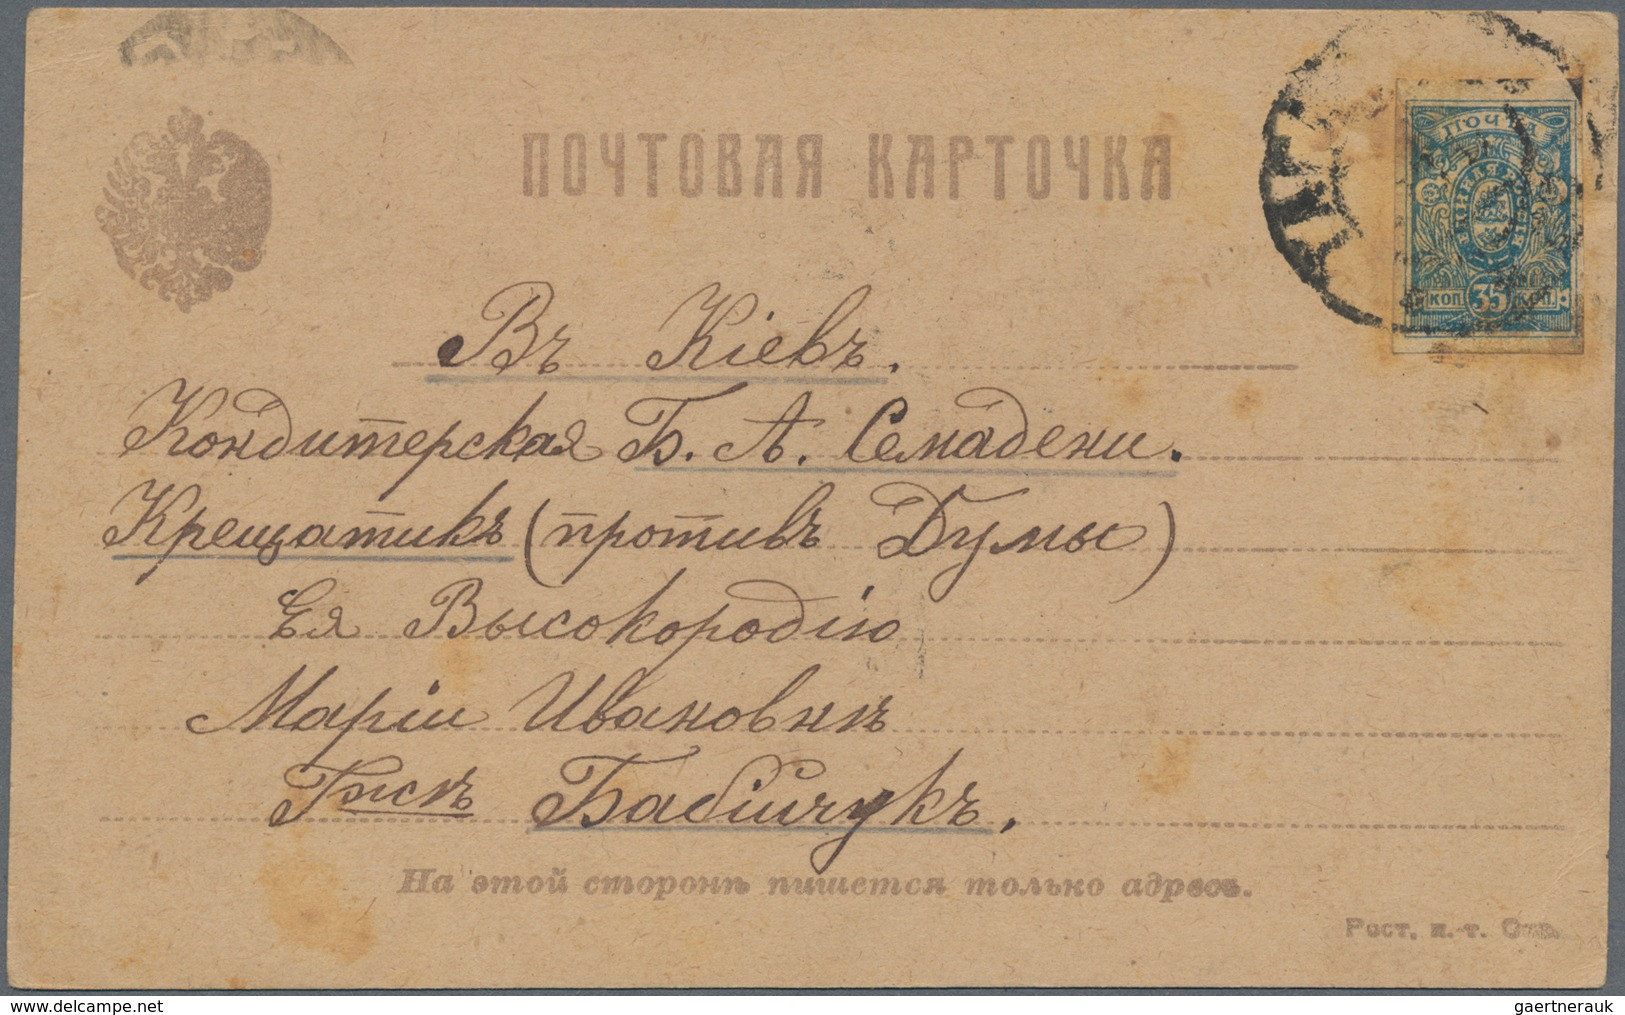 ПОЧТОВАЯ КАРТОЧКА
ПОЧТА
КОП. 35 КОП.
Въ Кіевъ.
Кондитерская Б. А. Семадени.
Крещатикъ (противъ Думы)
Ея Высокородію
Маріи Ивановнѣ
Гжѣ Бабичукъ.
На этой сторонѣ пишется только адресъ.
Рост. п.-т. Отд.
www.delcampe.net
gaertnerauk